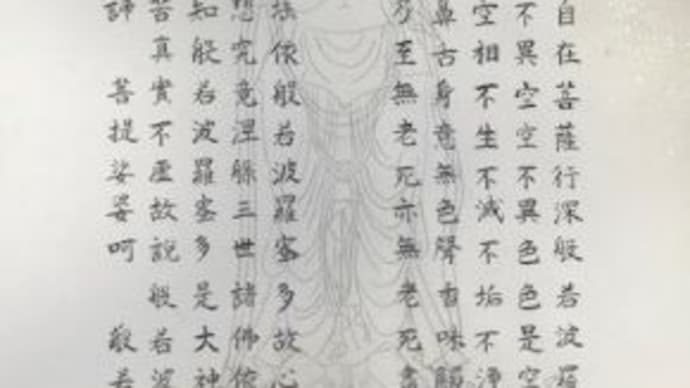 自在菩薩行深般若波羅
不異空空不異色色是空
空相不生不滅不垢不淨
鼻舌身意無色聲香味觸
乃至無老死亦無老死盡
埵依般若波羅蜜多故心
想究竟涅槃三世諸佛依
知般若波羅蜜多是大神
苦真實不虚故說般若波
諦 菩提娑婆呵 般若